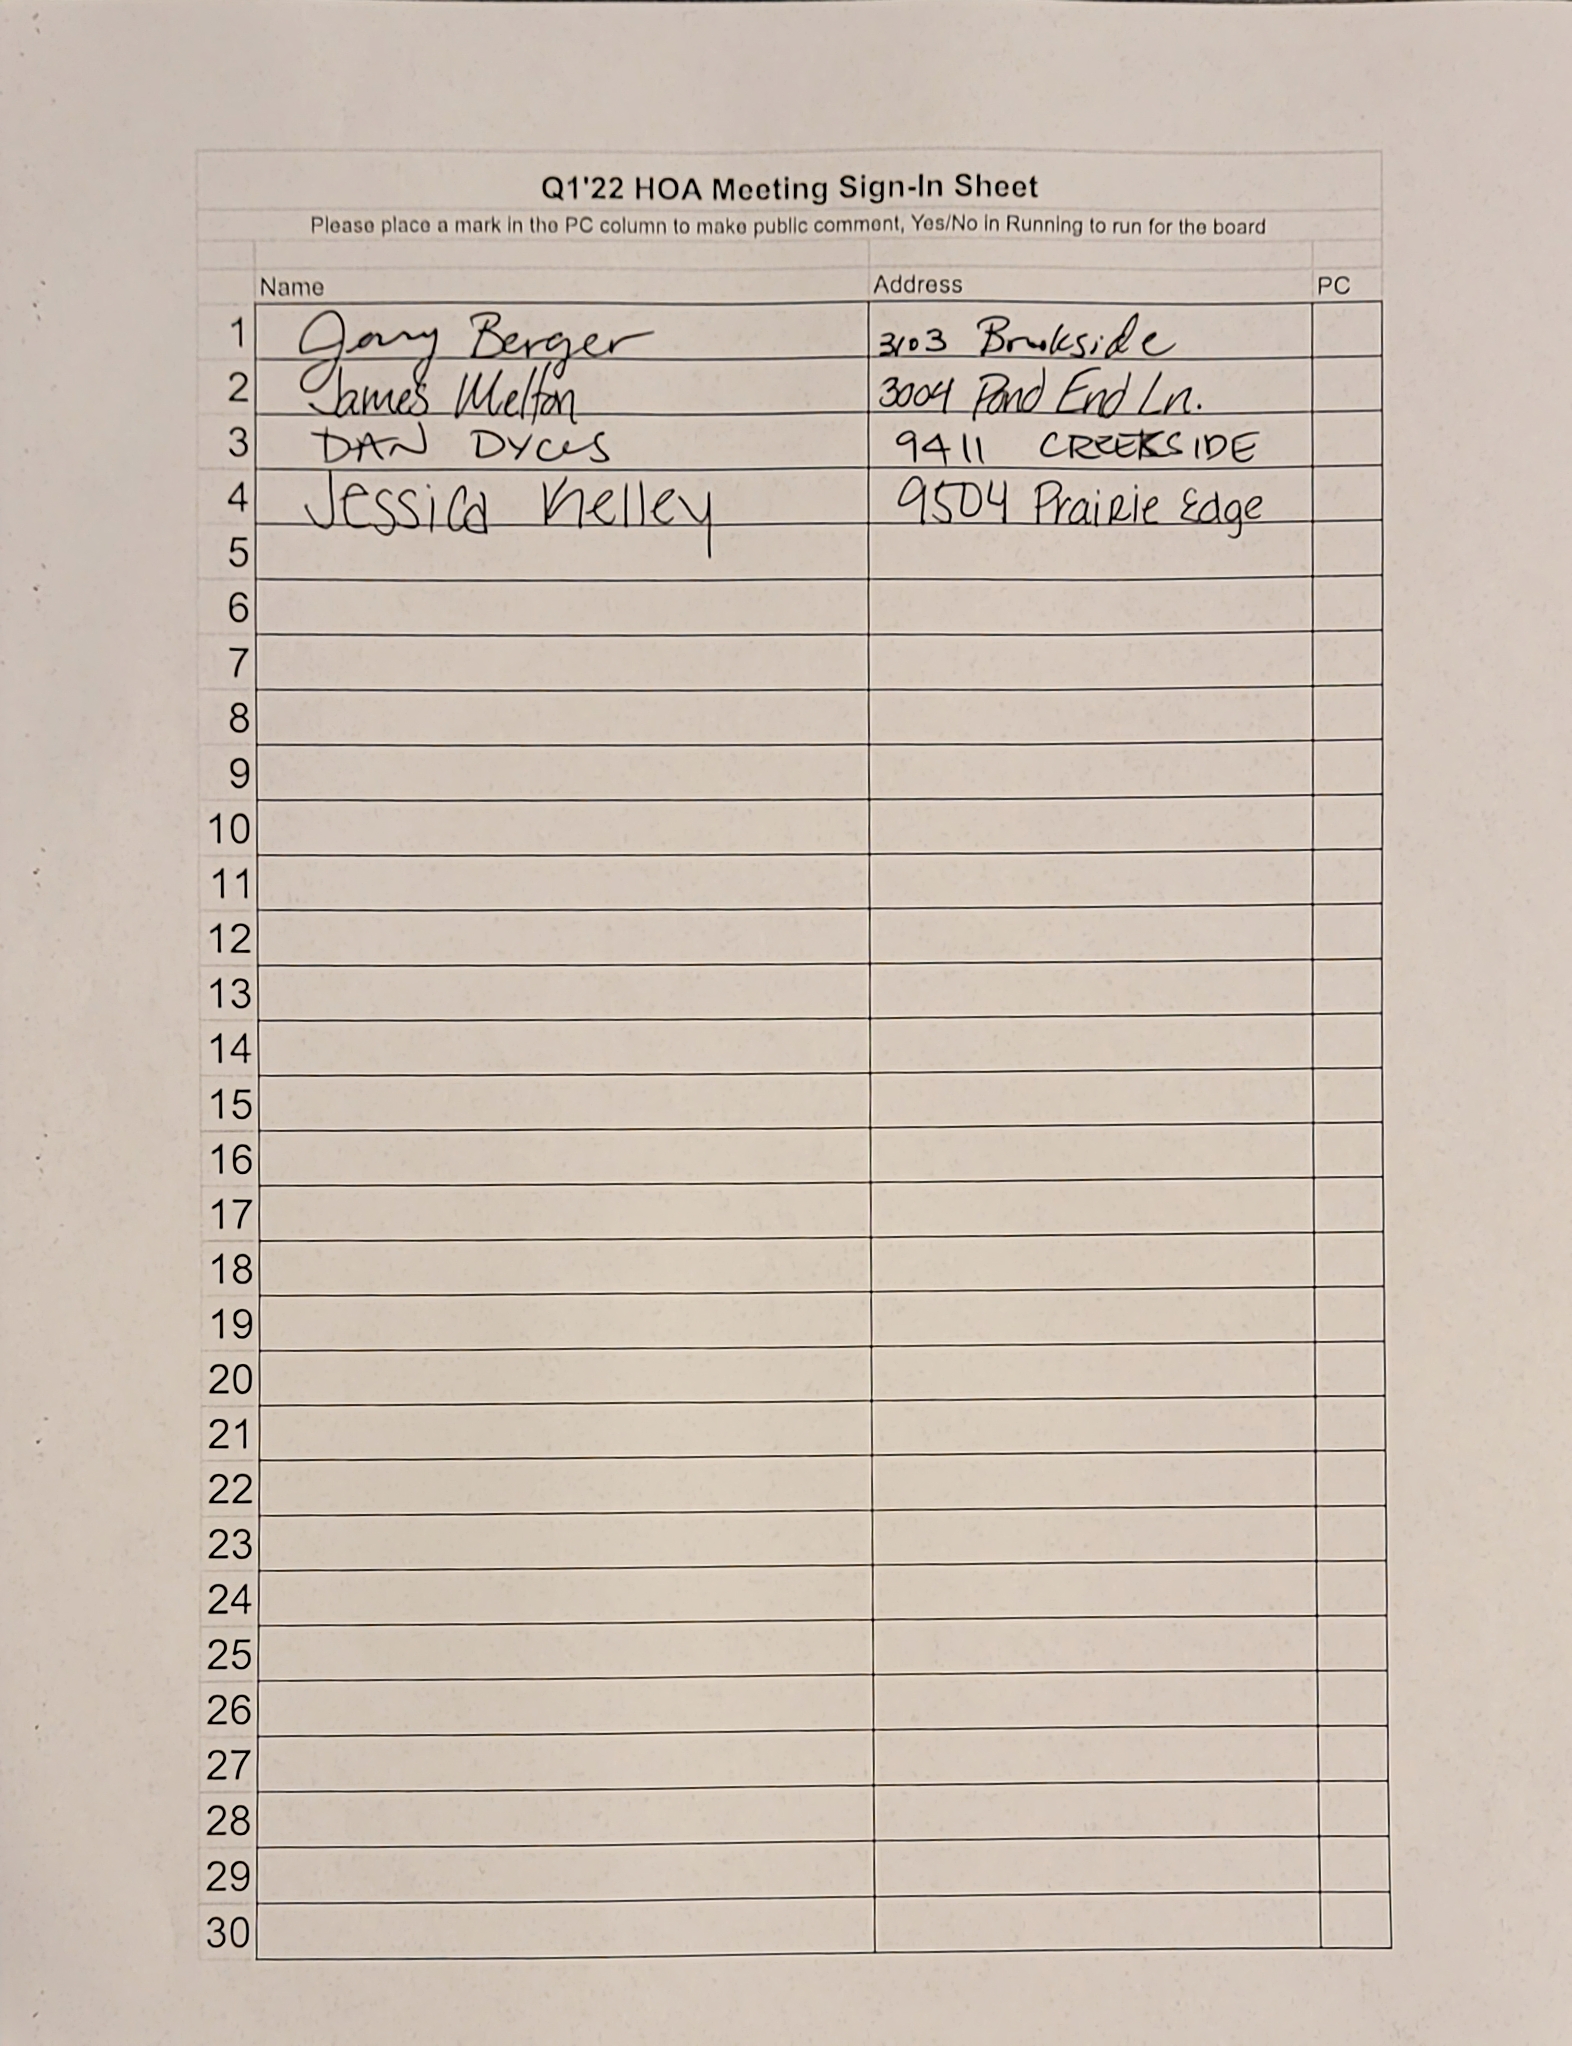 Q1'22 HOA Meeting Sign-In Sheet
Please place a mark in the PC column to make public comment, Yes/No in Running to run for the board
Name Address PC
1 Berger 3103 Brookside
2 James Melton 3004 Pond End Ln.
3 DAN DYCUS 9411 CREEKSIDE
4 Jessica Kelley 9504 Prairie Edge
5
6
7
8
9
10
11
12
13
14
15
16
17
18
19
20
21
22
23
24
25
26
27
28
29
30